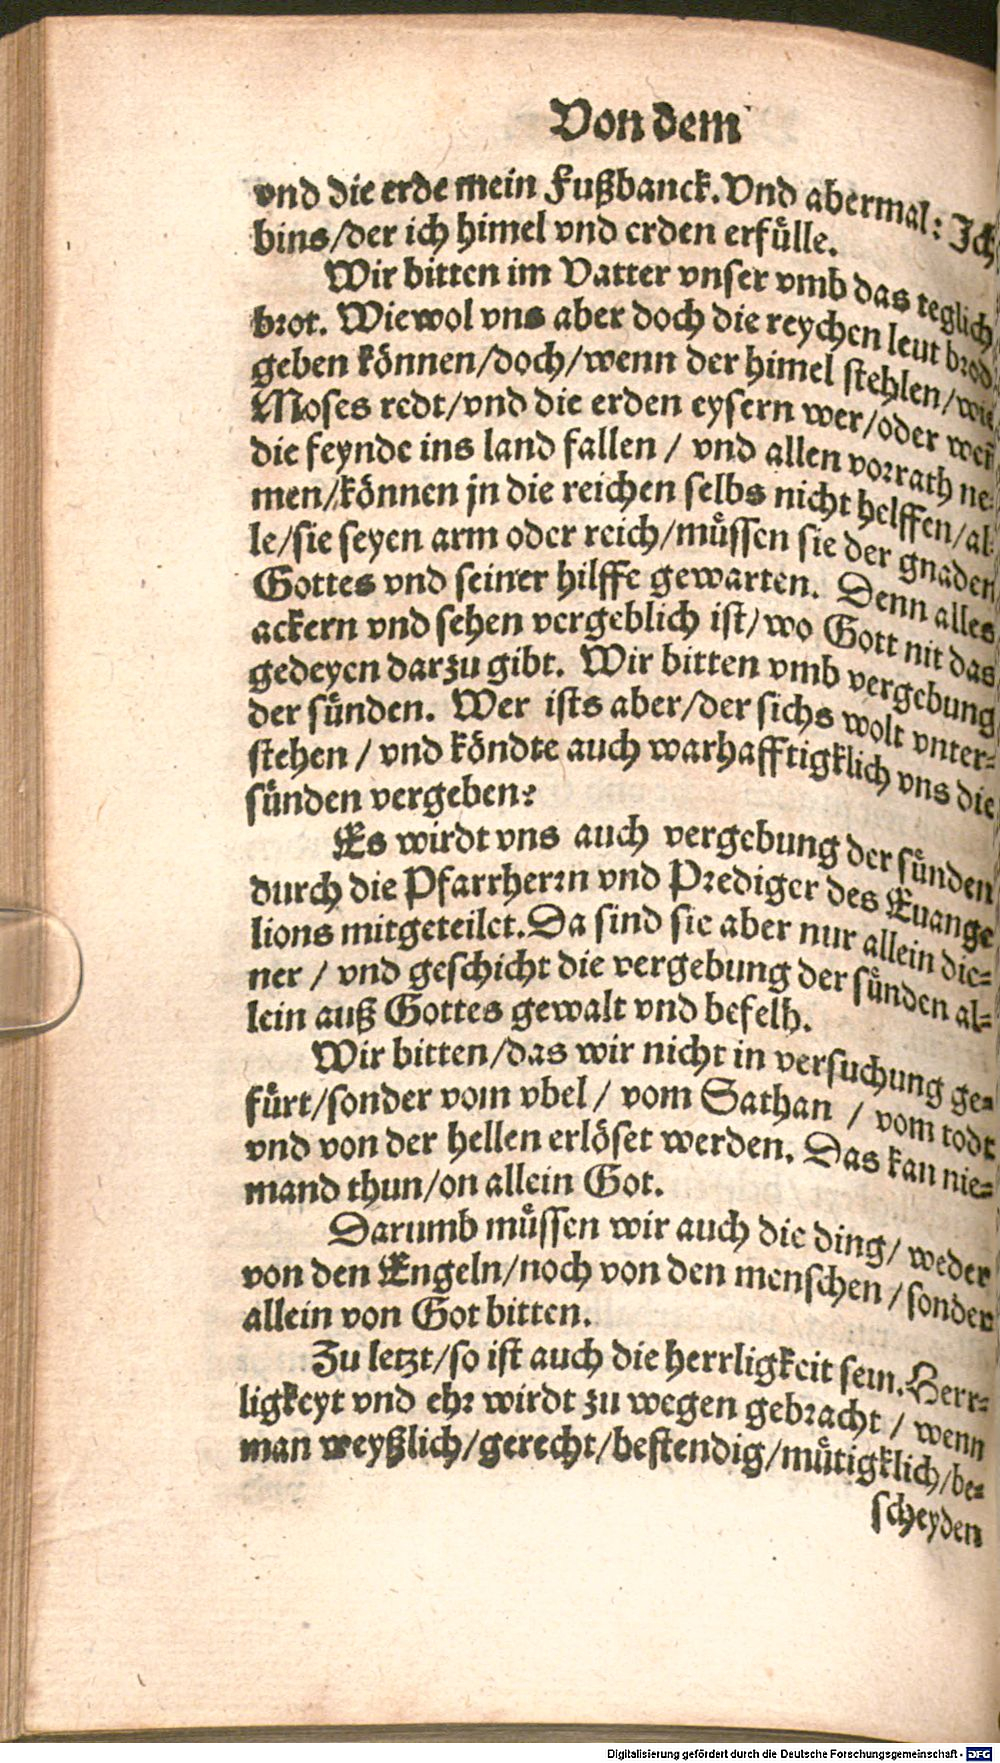 Von dem
vnd die erde mein Fußbanck. Vnd abermal: Ich
bins/der ich himel vnd erden erfuͤlle.
Wir bitten im Vatter vnser vmb das teglich
brot. Wiewol vns aber doch die reychen leut brod
geben können/doch/wenn der himel stehlen/wie
Moses redt/vnd die erden eysern wer/oder weñ
die feynde ins land fallen / vnd allen vorrath ne-
men/können jn die reichen selbs nicht helffen/al-
le/sie seyen arm oder reich/muͤssen sie der gnaden
Gottes vnd seiner hilffe gewarten. Denn alles
ackern vnd sehen vergeblich ist/wo Gott nit das
gedeyen darzu gibt. Wir bitten vmb vergebung
der suͤnden. Wer ists aber/der sichs wolt vnter-
stehen / vnd köndte auch warhafftigklich vns die
suͤnden vergeben?
Es wirdt vns auch vergebung der suͤnden
durch die Pfarrherrn vnd Prediger des Euange
lions mitgeteilet. Da sind sie aber nur allein die-
ner / vnd geschicht die vergebung der suͤnden al-
lein auß Gottes gewalt vnd befelh.
Wir bitten/das wir nicht in versuchung ge-
fuͤrt/sonder vom vbel / vom Sathan / vom todt
vnd von der hellen erlöset werden. Das kan nie-
mand thun/on allein Got.
Darumb muͤssen wir auch die ding/ weder
von den Engeln/noch von den menschen / sonder
allein von Got bitten.
Zu letzt/so ist auch die herrligkeit sein. Herr-
ligkeyt vnd ehr wirdt zu wegen gebracht / wenn
man weyßlich/gerecht/bestendig/muͤtigklich/be-
scheyden
Digitalisierung gefördert durch die Deutsche Forschungsgemeinschaft - DFG